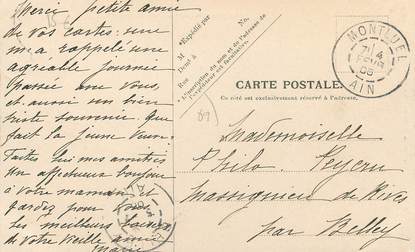 Merci petite amie
de vos cartes : une
m'a rappelé une
agréable journée
passée avec vous,
et aussi un bien
triste souvenir. Que
fait la jeune
Faites lui mes amitiés
Un affectueux bonjour
à votre maman
gardez pour vous
les meilleurs baisers
de votre vieille amie
Marie
*Expédié par
M
Demt à
Rue
No
* L'inscription du nom et de l'adresse de
l'expéditeur est facultative.
MONTLUEL
7 4
FEVR
06
AIN
CARTE POSTALE
Ce côté est exclusivement réservé à l'adresse.
Mademoiselle
Philo
Massignieu de Rives
par Belley